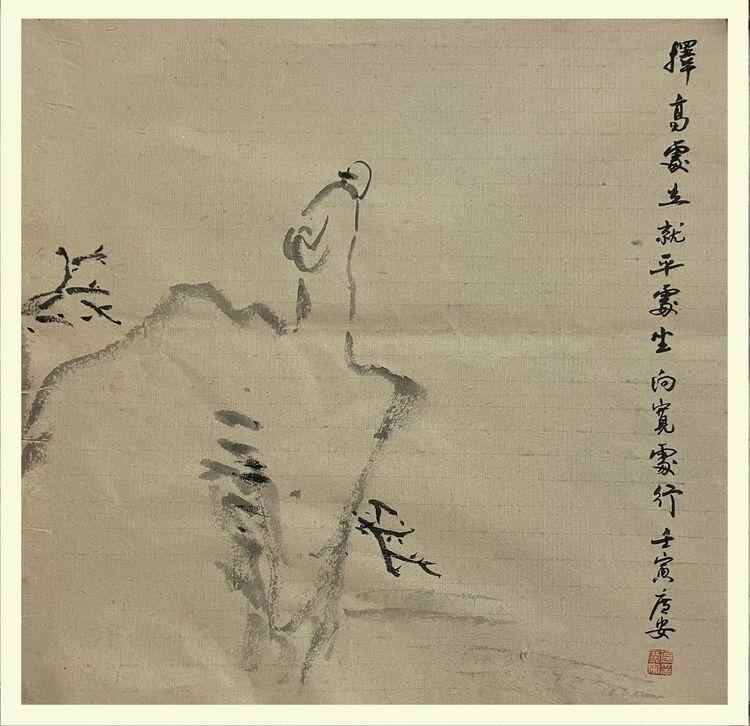 擇高處立就平處坐向寬處行壬寅唐安